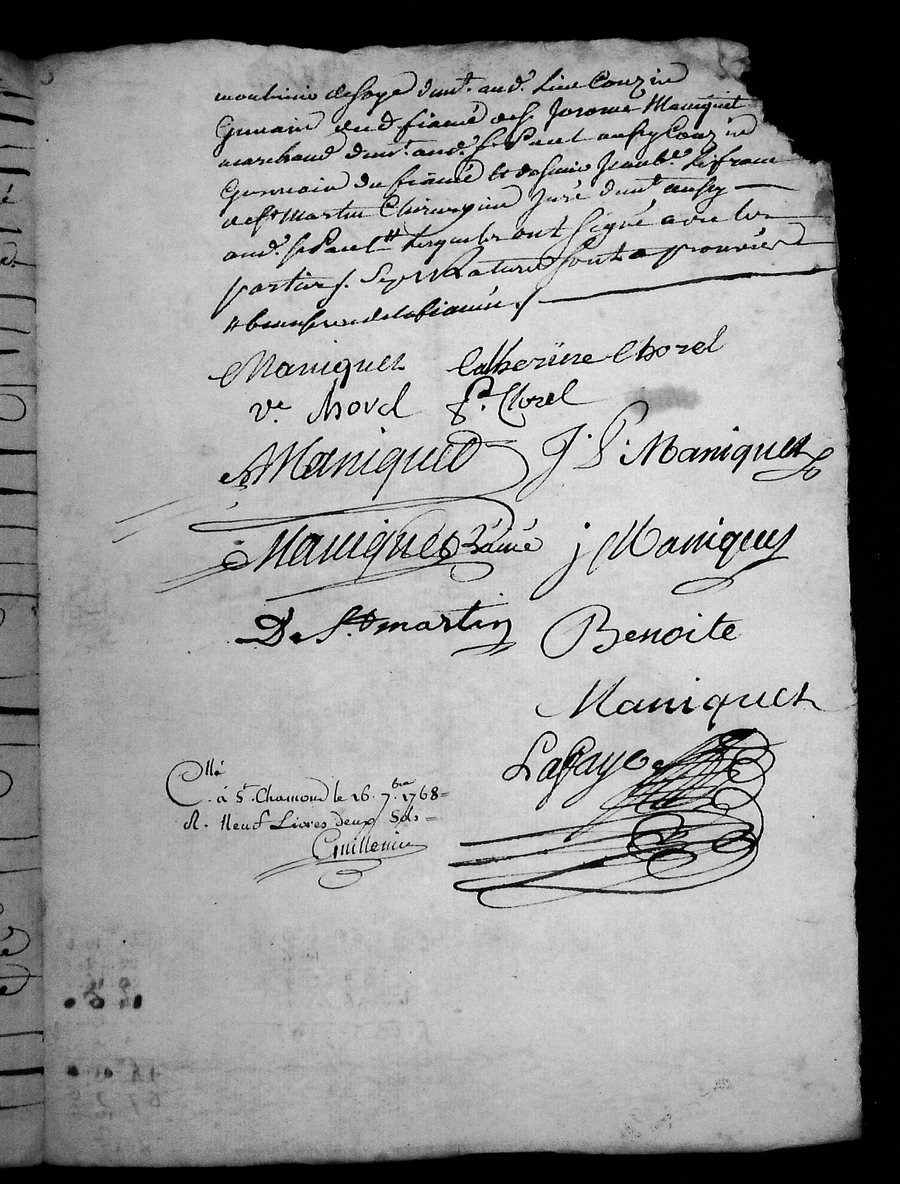 moulinier de soye dem.t aud.t lieu Couzin
Germain dud. fiancé de s.r Jerome Maniquet
marchand dem.t aud. S.t Paul aussy Couzin
Germain du fiancé et de sieur Jean
de S.t Martin Chirurgien Juré dem.t aussy
aud. S.t Paul # lesquels ont signé avec les
parties /. Sept Ratures sont aprouvées
# beaufrere de la fiancée /
Maniquet Catherine Chorel
v.e Chorel p.re Chorel
A Maniquet J. P. Maniquet
Maniquet L'ainé j Maniquet
De St martin Benoite
Maniquet
Lafaye
C.llé
à S.t Chamond le 16. 7.bre 1768
R. Neuf Livres deux Sols
Guillemin